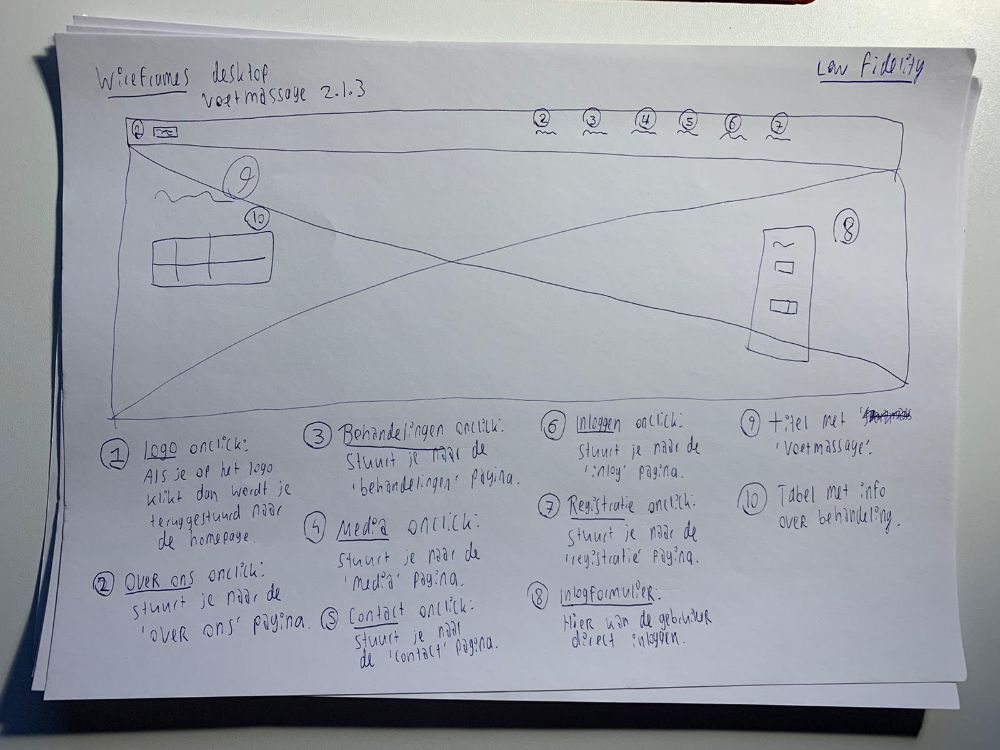 Wireframes desktop
voetmassage 2.1.3
Low Fidelity
1
2
3
4
5
6
7
9
10
8
1 Logo onclick:
Als je op het logo
klikt dan wordt je
teruggestuurd naar
de homepage.
2 Over ons onclick:
stuurt je naar de
'over ons' pagina.
3 Behandelingen onclick:
stuurt je naar de
'behandelingen' pagina.
4 Media onclick:
stuurt je naar de
'media' pagina.
5 Contact onclick:
stuurt je naar
de 'contact' pagina.
6 Inloggen onclick:
stuurt je naar de
'inlog' pagina.
7 Registratie onclick:
stuurt je naar de
'registratie' pagina.
8 Inlogformulier:
Hier kan de gebruiker
direct inloggen.
9 titel met
'Voetmassage'.
10 Tabel met info
over behandeling.